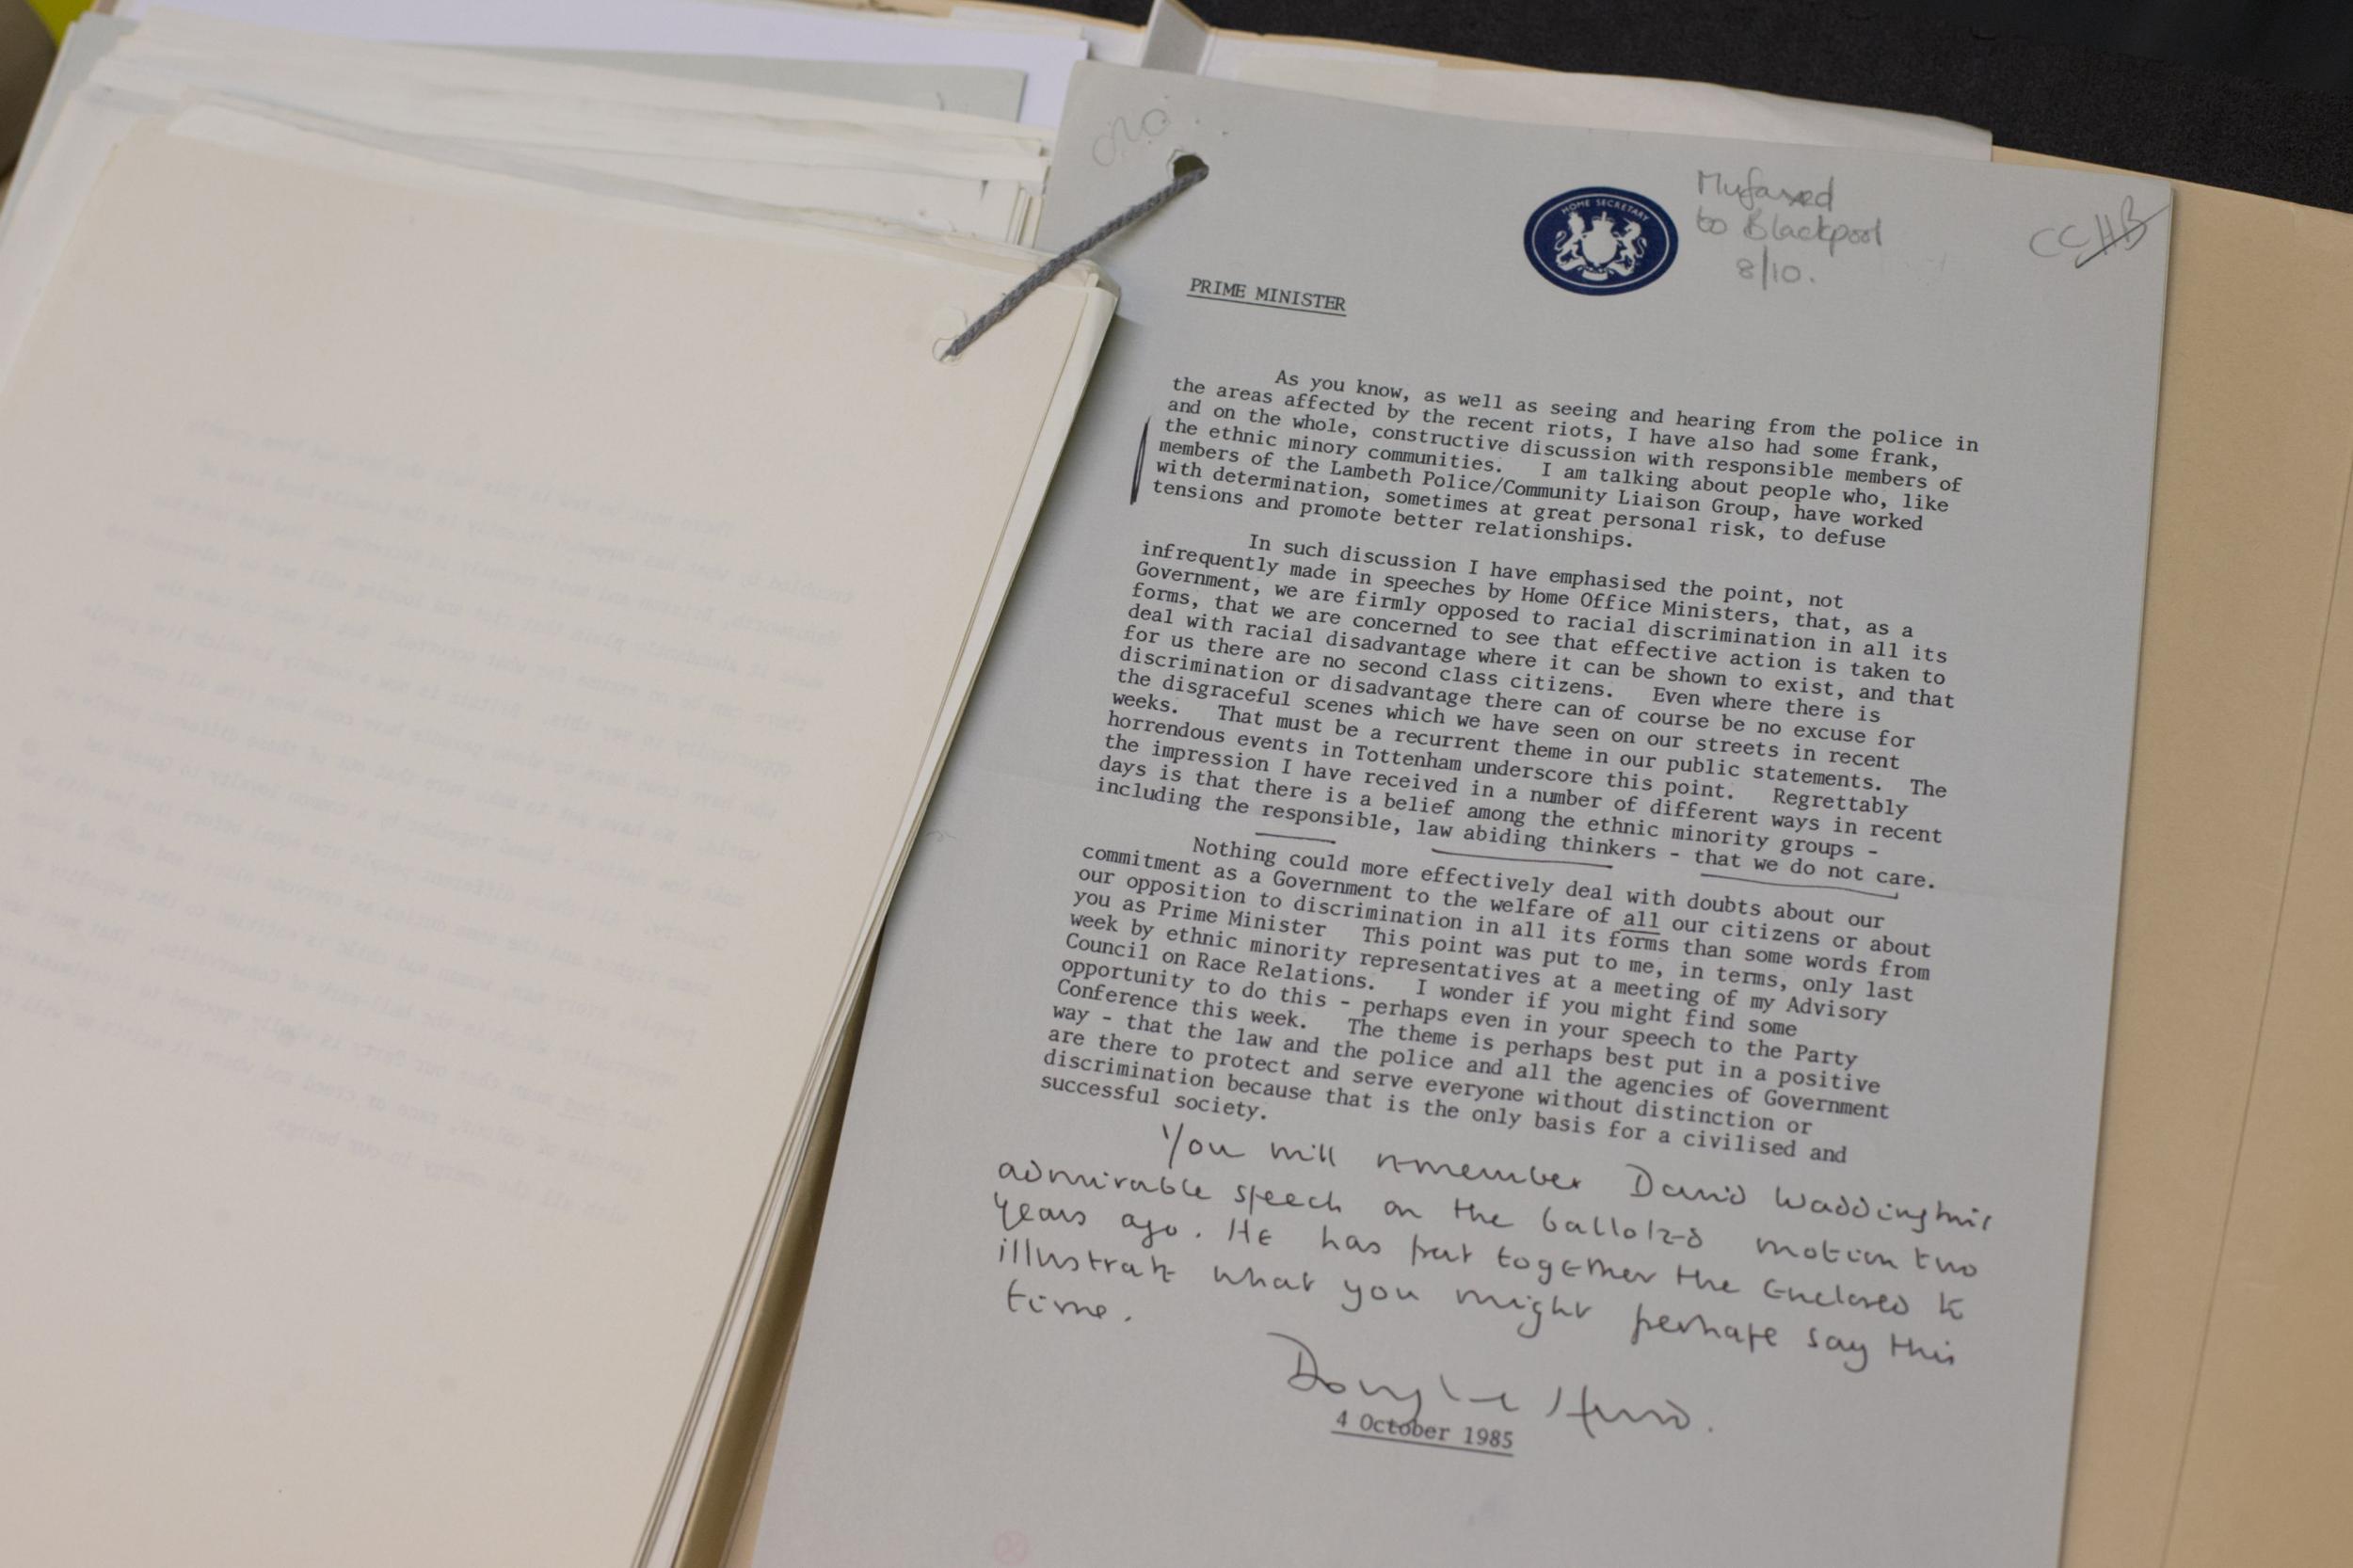 HOME SECRETARY
Mufaxed
to Blackpool
8/10.
CCHB
PRIME MINISTER
As you know, as well as seeing and hearing from the police in
the areas affected by the recent riots, I have also had some frank,
and on the whole, constructive discussion with responsible members of
the ethnic minory communities. I am talking about people who, like
members of the Lambeth Police/Community Liaison Group, have worked
with determination, sometimes at great personal risk, to defuse
tensions and promote better relationships.
In such discussion I have emphasised the point, not
infrequently made in speeches by Home Office Ministers, that, as a
Government, we are firmly opposed to racial discrimination in all its
forms, that we are concerned to see that effective action is taken to
deal with racial disadvantage where it can be shown to exist, and that
for us there are no second class citizens. Even where there is
discrimination or disadvantage there can of course be no excuse for
the disgraceful scenes which we have seen on our streets in recent
weeks. That must be a recurrent theme in our public statements. The
horrendous events in Tottenham underscore this point. Regrettably
the impression I have received in a number of different ways in recent
days is that there is a belief among the ethnic minority groups -
including the responsible, law abiding thinkers - that we do not care.
Nothing could more effectively deal with doubts about our
commitment as a Government to the welfare of all our citizens or about
our opposition to discrimination in all its forms than some words from
you as Prime Minister This point was put to me, in terms, only last
week by ethnic minority representatives at a meeting of my Advisory
Council on Race Relations. I wonder if you might find some
opportunity to do this - perhaps even in your speech to the Party
Conference this week. The theme is perhaps best put in a positive
way - that the law and the police and all the agencies of Government
are there to protect and serve everyone without distinction or
discrimination because that is the only basis for a civilised and
successful society.
You will remember David Waddington's
admirable speech on the balloted motion two
years ago. He has put together the enclosed to
illustrate what you might perhaps say this
time.
Douglas Hurd.
4 October 1985